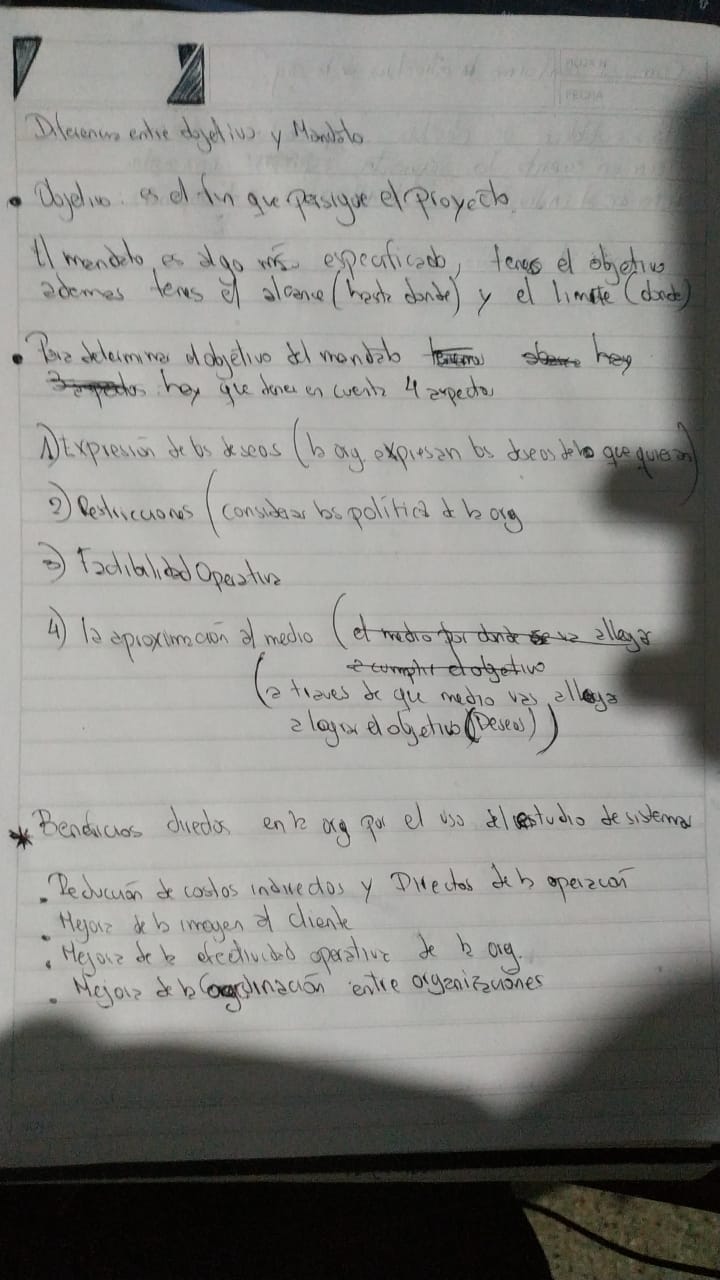 Diferencia entre objetivo y Mandato
• Objetivo: es el fin que persigue el proyecto.
El mandato es algo más especificado, tenes el objetivo
ademas tenes el alcance (hasta donde) y el limite (donde)
• Para determinar el objetivo del mandato hay
hay que tener en cuenta 4 aspectos
1) Expresión de los deseos (la org. expresan los deseos de lo que quieran)
2) Restricciones (considerar las política de la org
3) Factibilidad Operativa
4) la aproximación al medio (el medio por donde se va a llegar
a cumplir el objetivo
(a traves de que medio vas a llegar
a lograr el objetivo (Deseos))
* Beneficios directos en la org por el uso del estudio de sistema
• Reducción de costos indirectos y Directos de la operación
• Mejora de la imagen al cliente
• Mejora de la efectividad operativa de la org.
• Mejora de la Coordinación entre organizaciones
FECHA